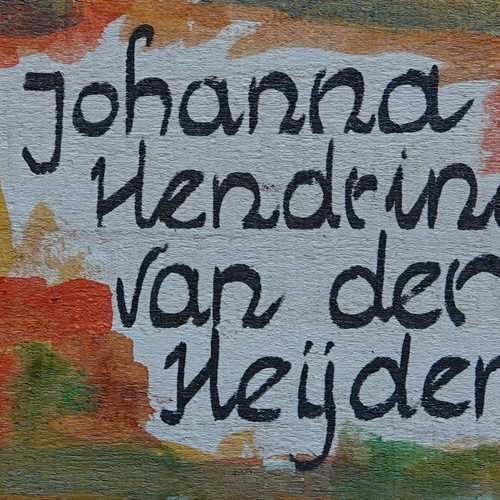 Johanna
Hendrin
van der
Heijder